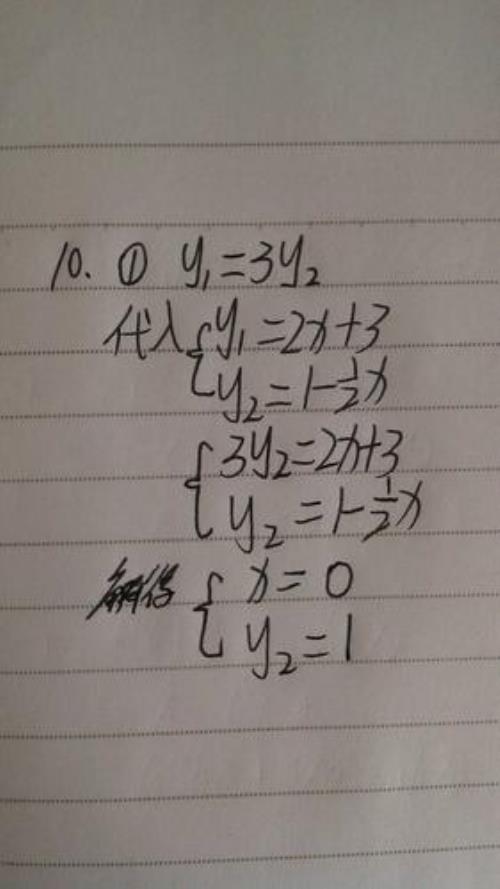 10. ① y₁=3y₂
代入 { y₁=2x+3
y₂=1-½x
{ 3y₂=2x+3
y₂=1-½x
解得 { x=0
y₂=1